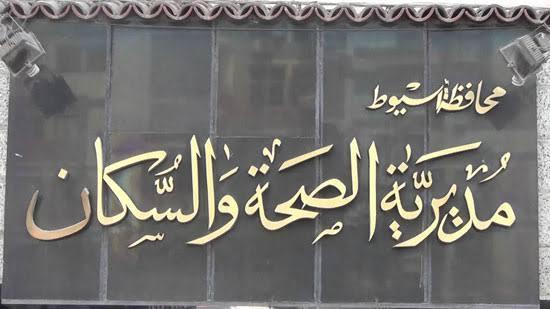 محافظة اسيوط
مُديريَّة الصِحَة وَالسُّكان